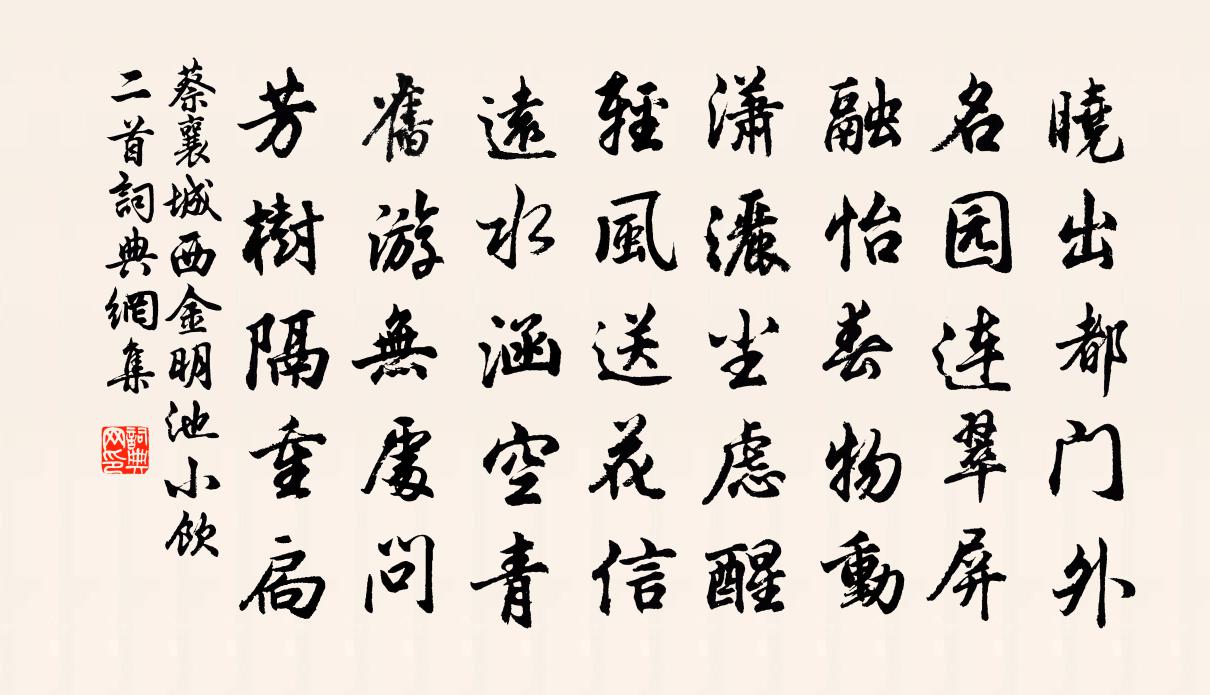 曉出都门外
名园连翠屏
融怡春物動
潇灑尘慮醒
輕風送花信
遠水涵空青
舊游無處問
芳樹隔重扃
蔡襄城西金明池小飲
二首詞典網集
詞典
网印